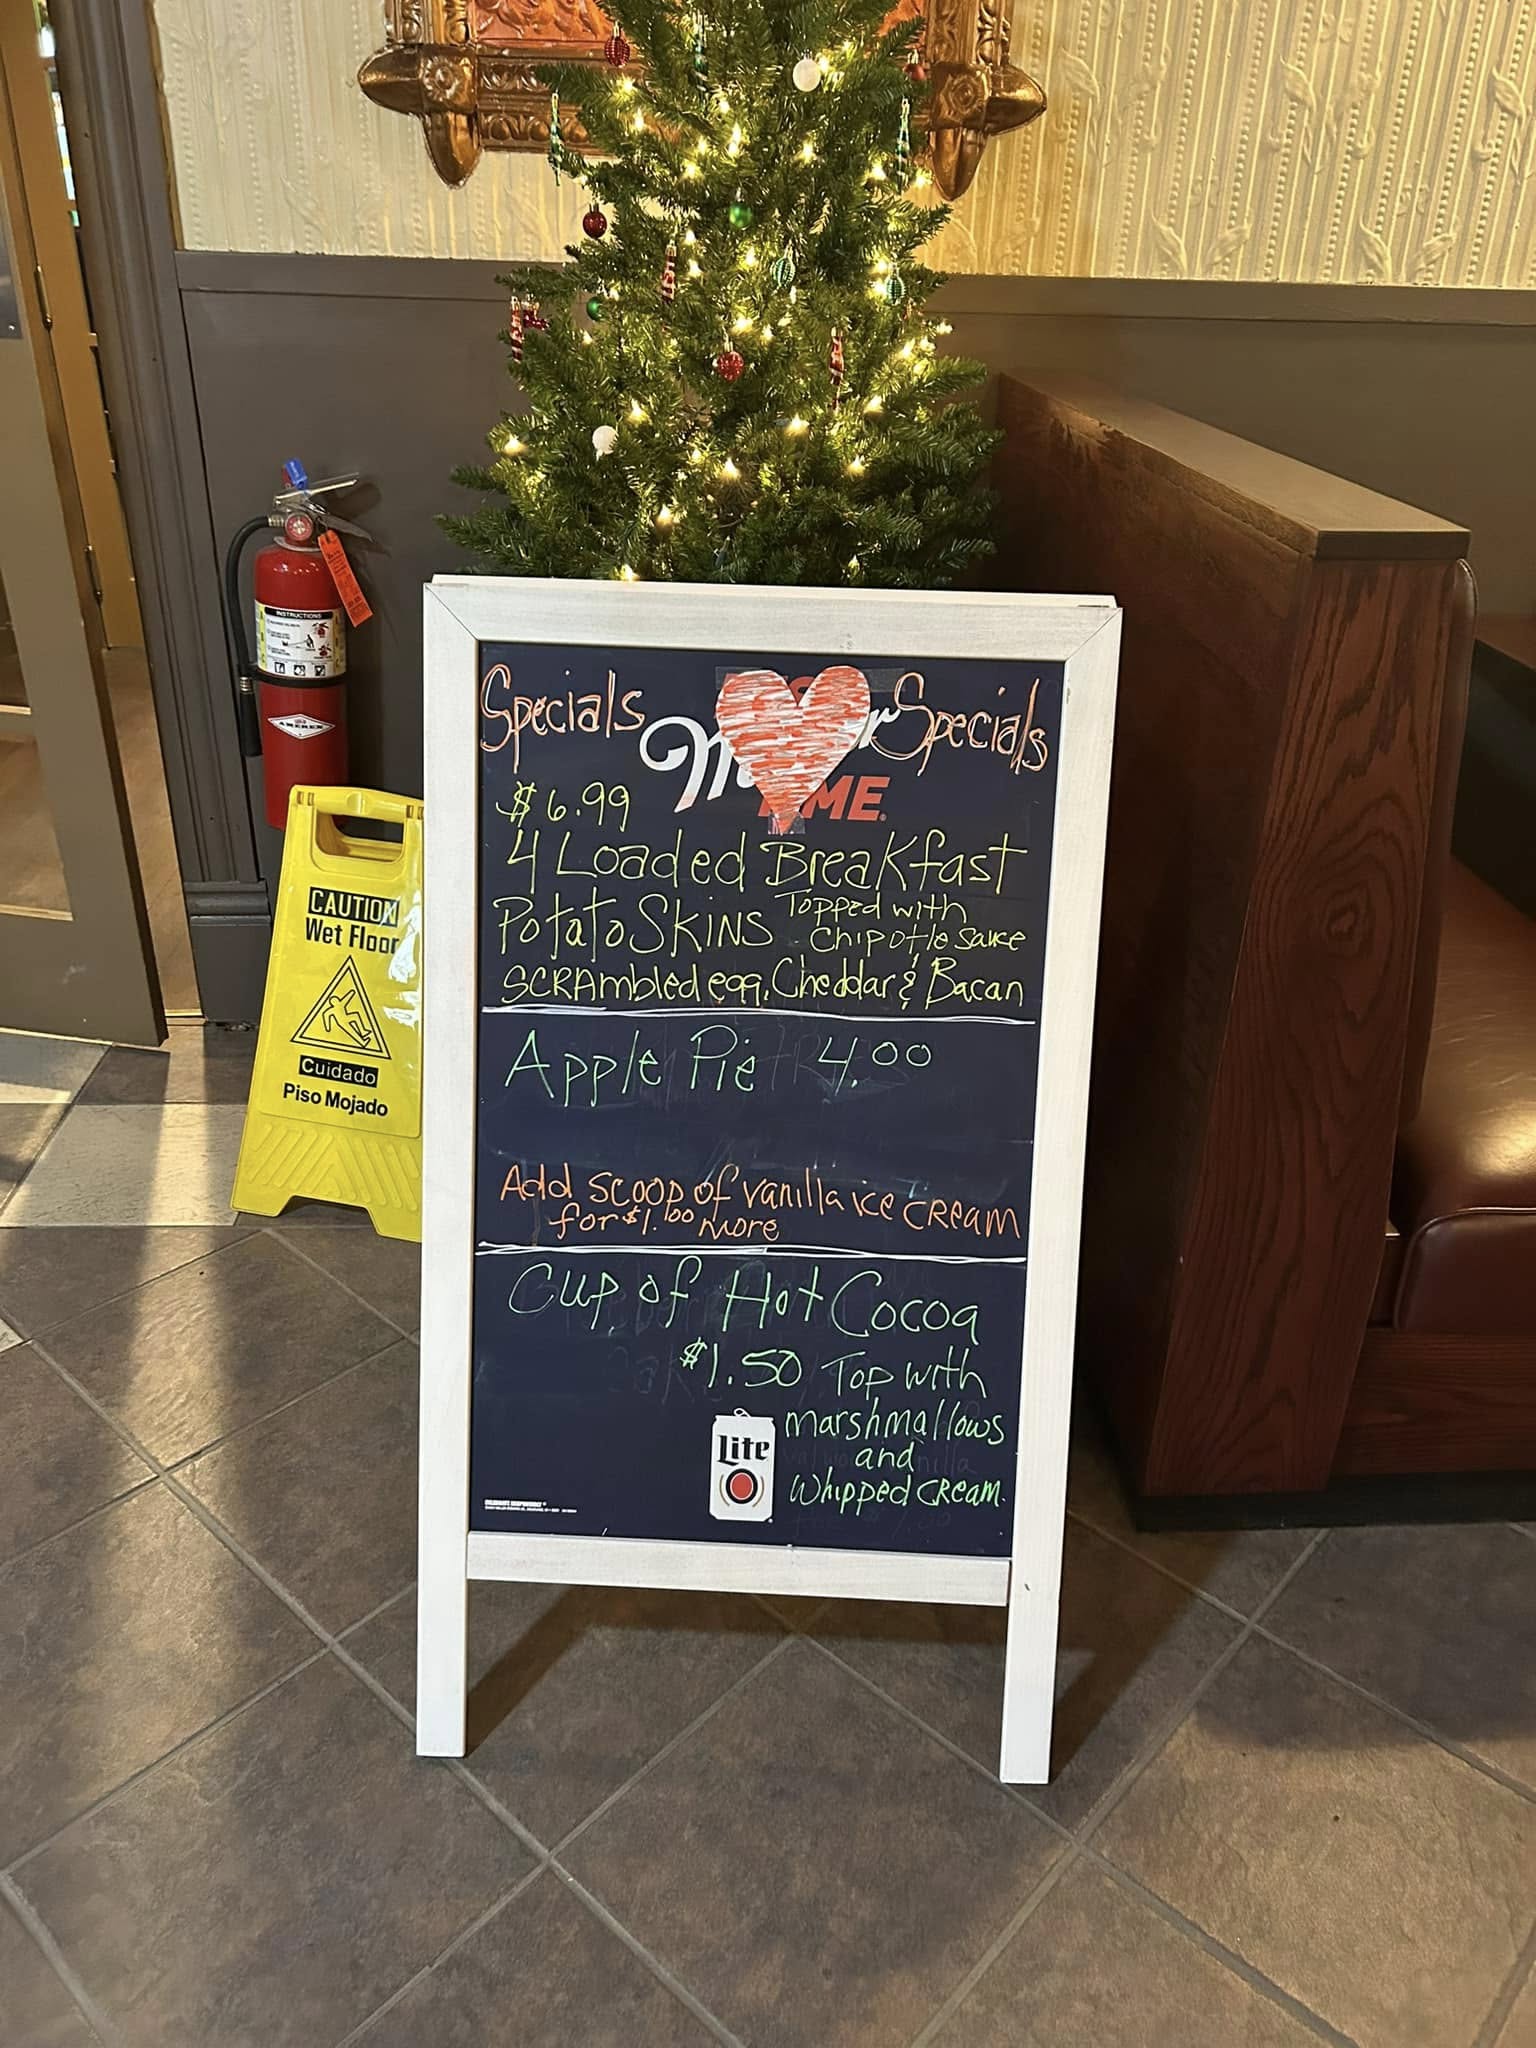 INSTRUCTIONS
AMEREX
CAUTION
Wet Floor
Cuidado
Piso Mojado
Specials
Specials
$6.99
4 Loaded Breakfast
Potato SKINS Topped with
Chipotle sauce
SCRAmbled egg, Cheddar & Bacan
Apple Pie 4.00
Add scoop of vanilla ice cream
for $1.00 more
Cup of Hot Cocoa
$1.50 Top with
marshmallows
and
whipped cream.
Lite